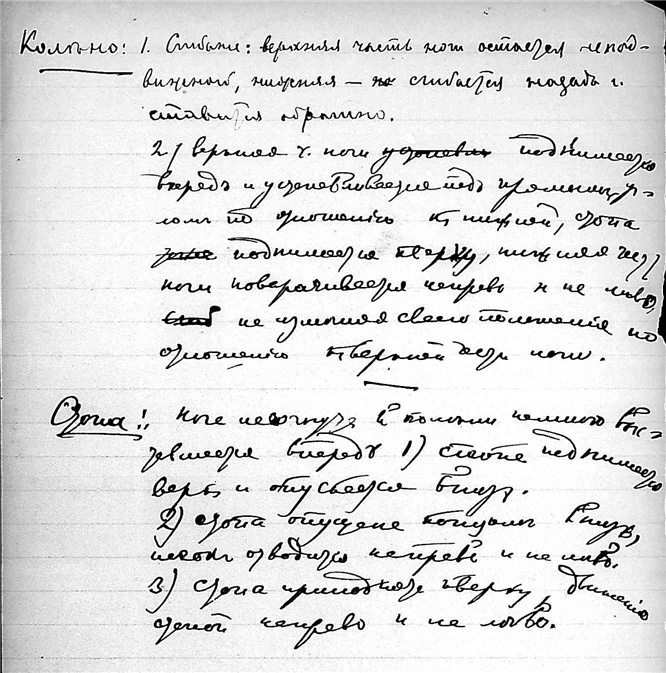 Колѣно: 1. Сгибание: верхняя часть ноги остается непод-
вижной, нижняя – сгибается назадъ и
ставится обратно.
2) верхняя ч. ноги поднимается
впередъ и устанавливается подъ прямымъ уг-
ломъ по отношенію къ нижней, стопа
поднимается кверху, нижняя часть
ноги поворачивается направо и на лѣво,
не измѣняя своего положенія по
отношенію къ верхней части ноги.
Стопа: нога не согнута въ колѣни немного выс-
тавляется впередъ 1) стопа поднимается
вверхъ и опускается внизъ.
2) стопа опущена концомъ внизъ,
носокъ отводится направо и на лѣво.
3) стопа приподнята кверху, движенія
стопой направо и на лѣво.